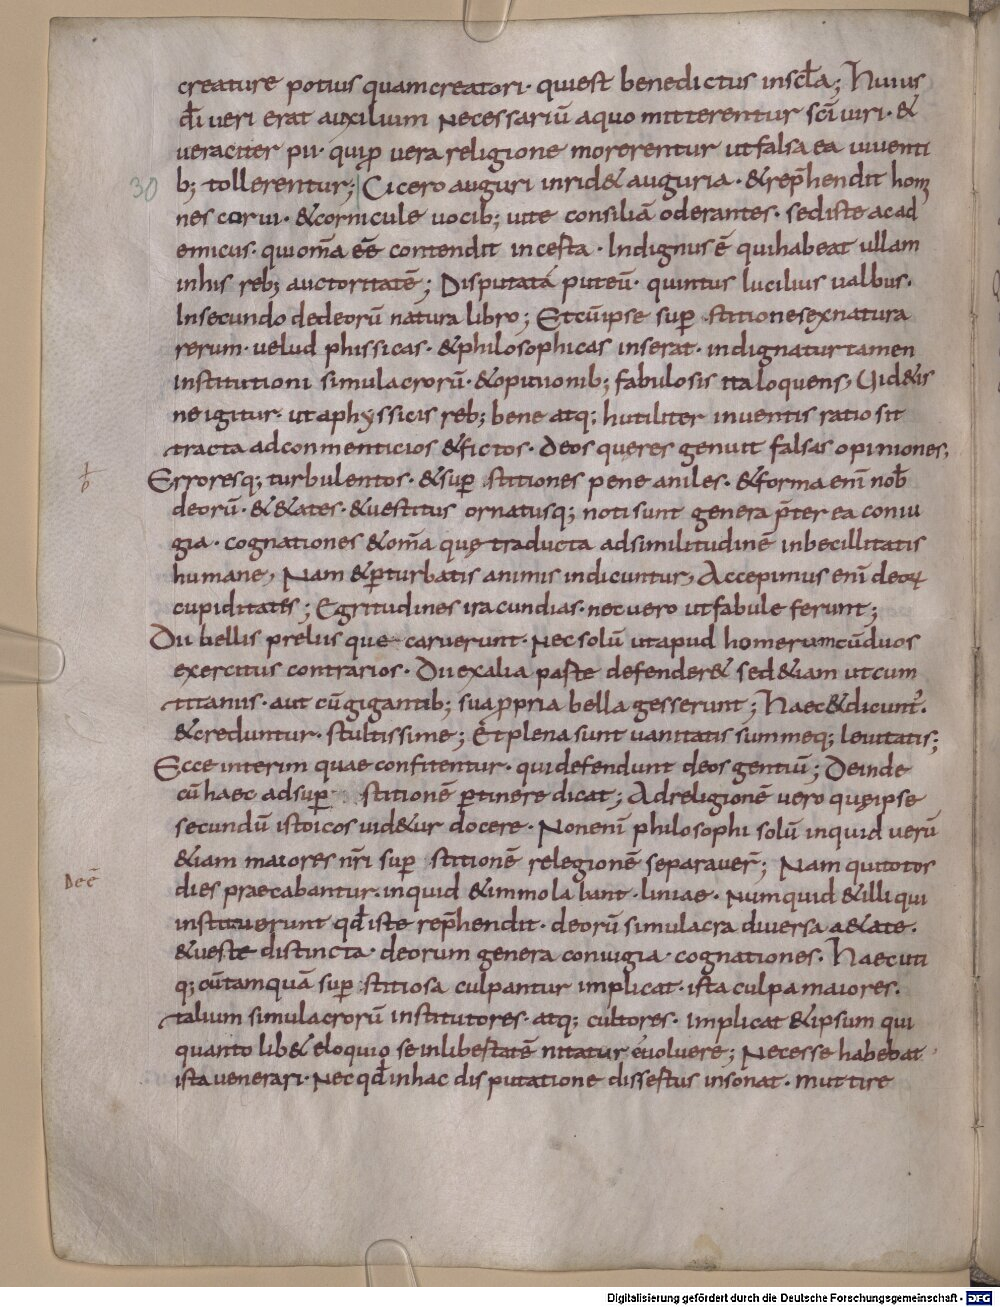 creature potius quamcreatori· quiest benedictus inscl̄a; Huius
d̄i ueri erat auxilium necessariū aquo mitterentur sc̄i uiri· &
ueraciter pii· quiꝑ uera religione morerentur utfalsa ea uiuenti
b; tollerentur; Cicero auguri inrid& auguria· &rep̄hendit hom
30
nes corui· &cornicule uocib; uite consiliā oderantes· sediste acad
emicus· quiom̄a eē contendit incesta· Indignus ē quihabeat ullam
inhis reb; auctoritatē; Disputatā puteū· quintus lucilius ualbus·
Insecundo dedeorū natura libro; Etcūipse suꝑ stitionesexnatura
rerum· uelud phissicas· &philosophicas inserat· indignaturtamen
institutioni simulacrorū· &opinionib; fabulosis ita loquens, Uid&is
ne igitur ut aphyssicis reb; bene atq; hutiliter inuentis ratio sit
tracta adconmenticios &fictos· deos queres genuit falsas opiniones;
Erroresq; turbulentos· &suꝑ stitiones pene aniles· &forma enī nob̄
deorū· & &ates· &uestitus ornatusq; noti sunt genera p̄ter ea coniu
gia· cognationes &om̄a que traducta adsimilitudinē inbecillitatis
humane, Nam &ꝑturbatis animis indicuntur, Accepimus enī deoꝝ
cupiditates; Egritudines ira cundias· nec uero utfabule ferunt;
Dii bellis preliis que caruerunt· Nec solū utapud homerumcūduos
exercitus contrarios· Dii exalia paste defender& sed &iam utcum
titanis· aut cūgigantib; sua ꝓpria bella gesserunt; Haec &dicunt̄·
&creduntur· stultissime; Et plena sunt uanitatis summeq; leuitatis;
Ecce interim quae confitentur· qui defendunt deos gentiū; Deinde
cū haec adsuꝑ stitionē ꝑtinere dicat; Adreligionē uero quęipse
secundū istoicos uid&ur docere· Non enī philosophi solū inquid uerū
&iam maiores nr̄i suꝑ stitionē relegionē separauer̄; Nam quitotos
dies praecabantur· inquid &immola bant· liniae· Numquid &illi qui
Deē
instituerunt qd̄ iste rep̄hendit· deorū simulacra diuersa a&ate·
&ueste distincta· deorum genera coniugia· cognationes· Haec uti
q; cūtamquā suꝑ stitiosa culpantur implicat· ista culpa maiores·
talium simulacrorū institutores· atq; cultores· implicat &ipsum qui
quanto lib& eloquio se inlibestatē nitatur euoluere; Necesse habebat
ista uenerari· Nec qd̄ inhac dis putatione dissestus insonat· muttire
Digitalisierung gefördert durch die Deutsche Forschungsgemeinschaft - DFG